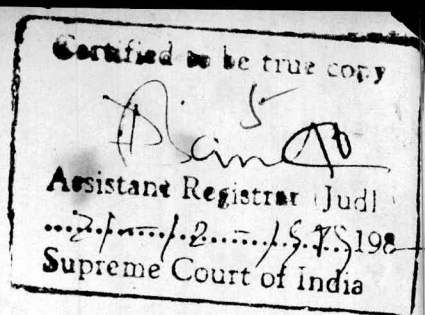 Certified to be true copy
Assistant Registrar (Judl)
198
Supreme Court of India